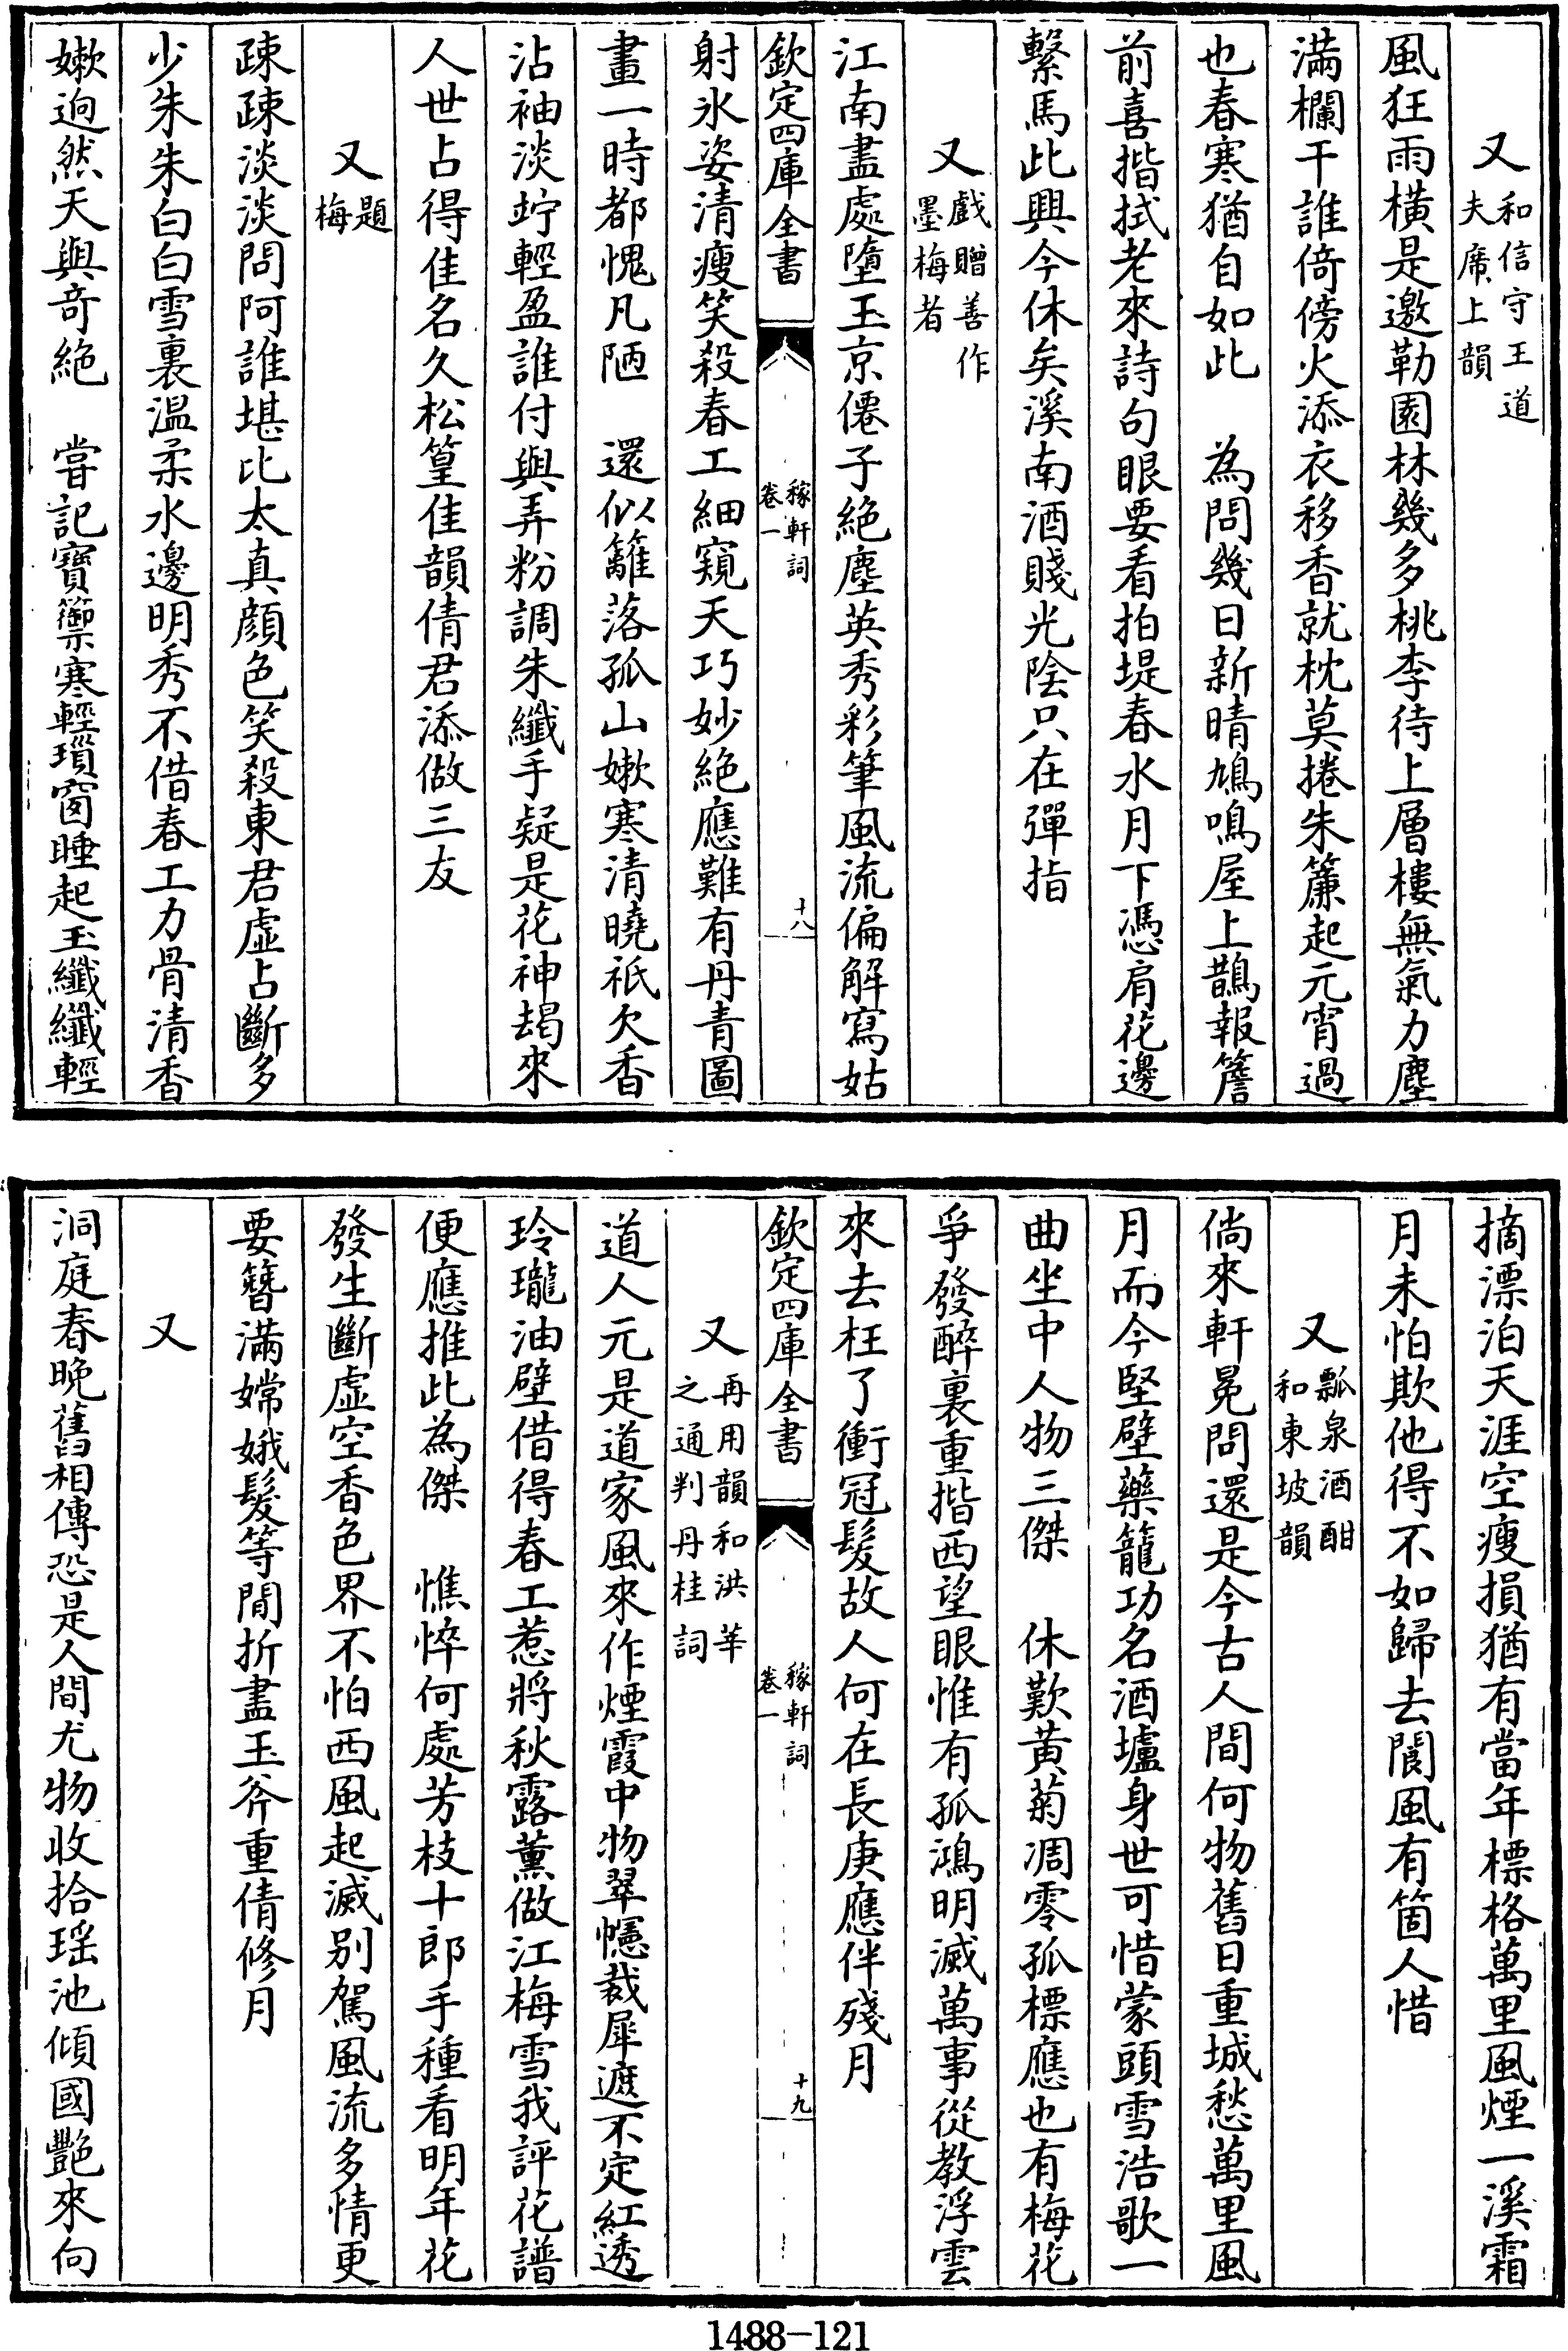 又和信守王道夫席上韻
風狂雨橫是邀勒園林幾多桃李待上層樓無氣力塵
滿欄干誰倚傍火添衣移香就枕莫捲朱簾起元宵過
也春寒猶自如此　為問幾日新晴鳩鳴屋上鵲報簷
前喜揩拭老來詩句眼要看拍堤春水月下憑肩花邊
繫馬此興今休矣溪南酒賤光陰只在彈指
又戲贈善作墨梅者
江南盡處墮玉京僊子絶塵英秀彩筆風流偏解寫姑
欽定四庫全書　稼軒詞卷一　十八
射氷姿清瘦笑殺春工細窺天巧妙絶應難有丹青圖
畫一時都愧凡陋　還似籬落孤山嫩寒清曉祇欠香
沾袖淡竚輕盈誰付與弄粉調朱纖手疑是花神朅來
人世占得佳名久松篁佳韻倩君添做三友
又題梅
疎疎淡淡問阿誰堪比太真顔色笑殺東君虛占斷多
少朱朱白白雪裏溫柔水邊明秀不借春工力骨清香
嫩逈然天與奇絶　嘗記寶籞寒輕瑣窗睡起玉纖纖輕
摘漂泊天涯空瘦損猶有當年標格萬里風煙一溪霜
月未怕欺他得不如歸去閬風有箇人惜
又瓢泉酒酣和東坡韻
倘來軒冕問還是今古人間何物舊日重城愁萬里風
月而今堅壁藥籠功名酒壚身世可惜蒙頭雪浩歌一
曲坐中人物三傑　休歎黃菊凋零孤標應也有梅花
爭發醉裏重揩西望眼惟有孤鴻明滅萬事從教浮雲
來去枉了衝冠髮故人何在長庚應伴殘月
欽定四庫全書　稼軒詞卷一　十九
又再用韻和洪莘之通判丹桂詞
道人元是道家風來作煙霞中物翠幰裁犀遮不定紅透
玲瓏油壁借得春工惹將秋露薰做江梅雪我評花譜
便應推此為傑　憔悴何處芳枝十郎手種看明年花
發生斷虛空香色界不怕西風起滅別駕風流多情更
要簪滿嫦娥髮等閒折盡玉斧重倩修月
又
洞庭春晚舊相傳恐是人間尤物收拾瑤池傾國艷來向
1488-121